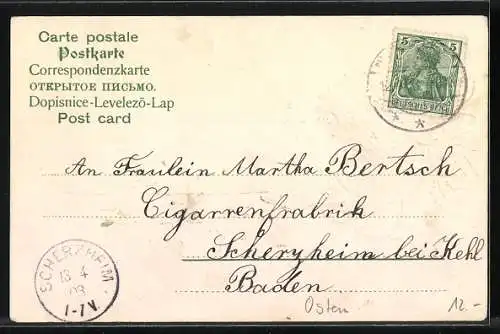 Carte postale
Postkarte
Correspondenzkarte
ОТКРЫТОЕ ПИСЬМО.
Dopisnice-Levelező-Lap
Post card
5 5
An Fräulein Martha Bertsch
Cigarrenfrabrik
Scherzheim bei Kehl
Baden
SCHERZHEIM
13 4
03
1-7 V.
Osten
12.-